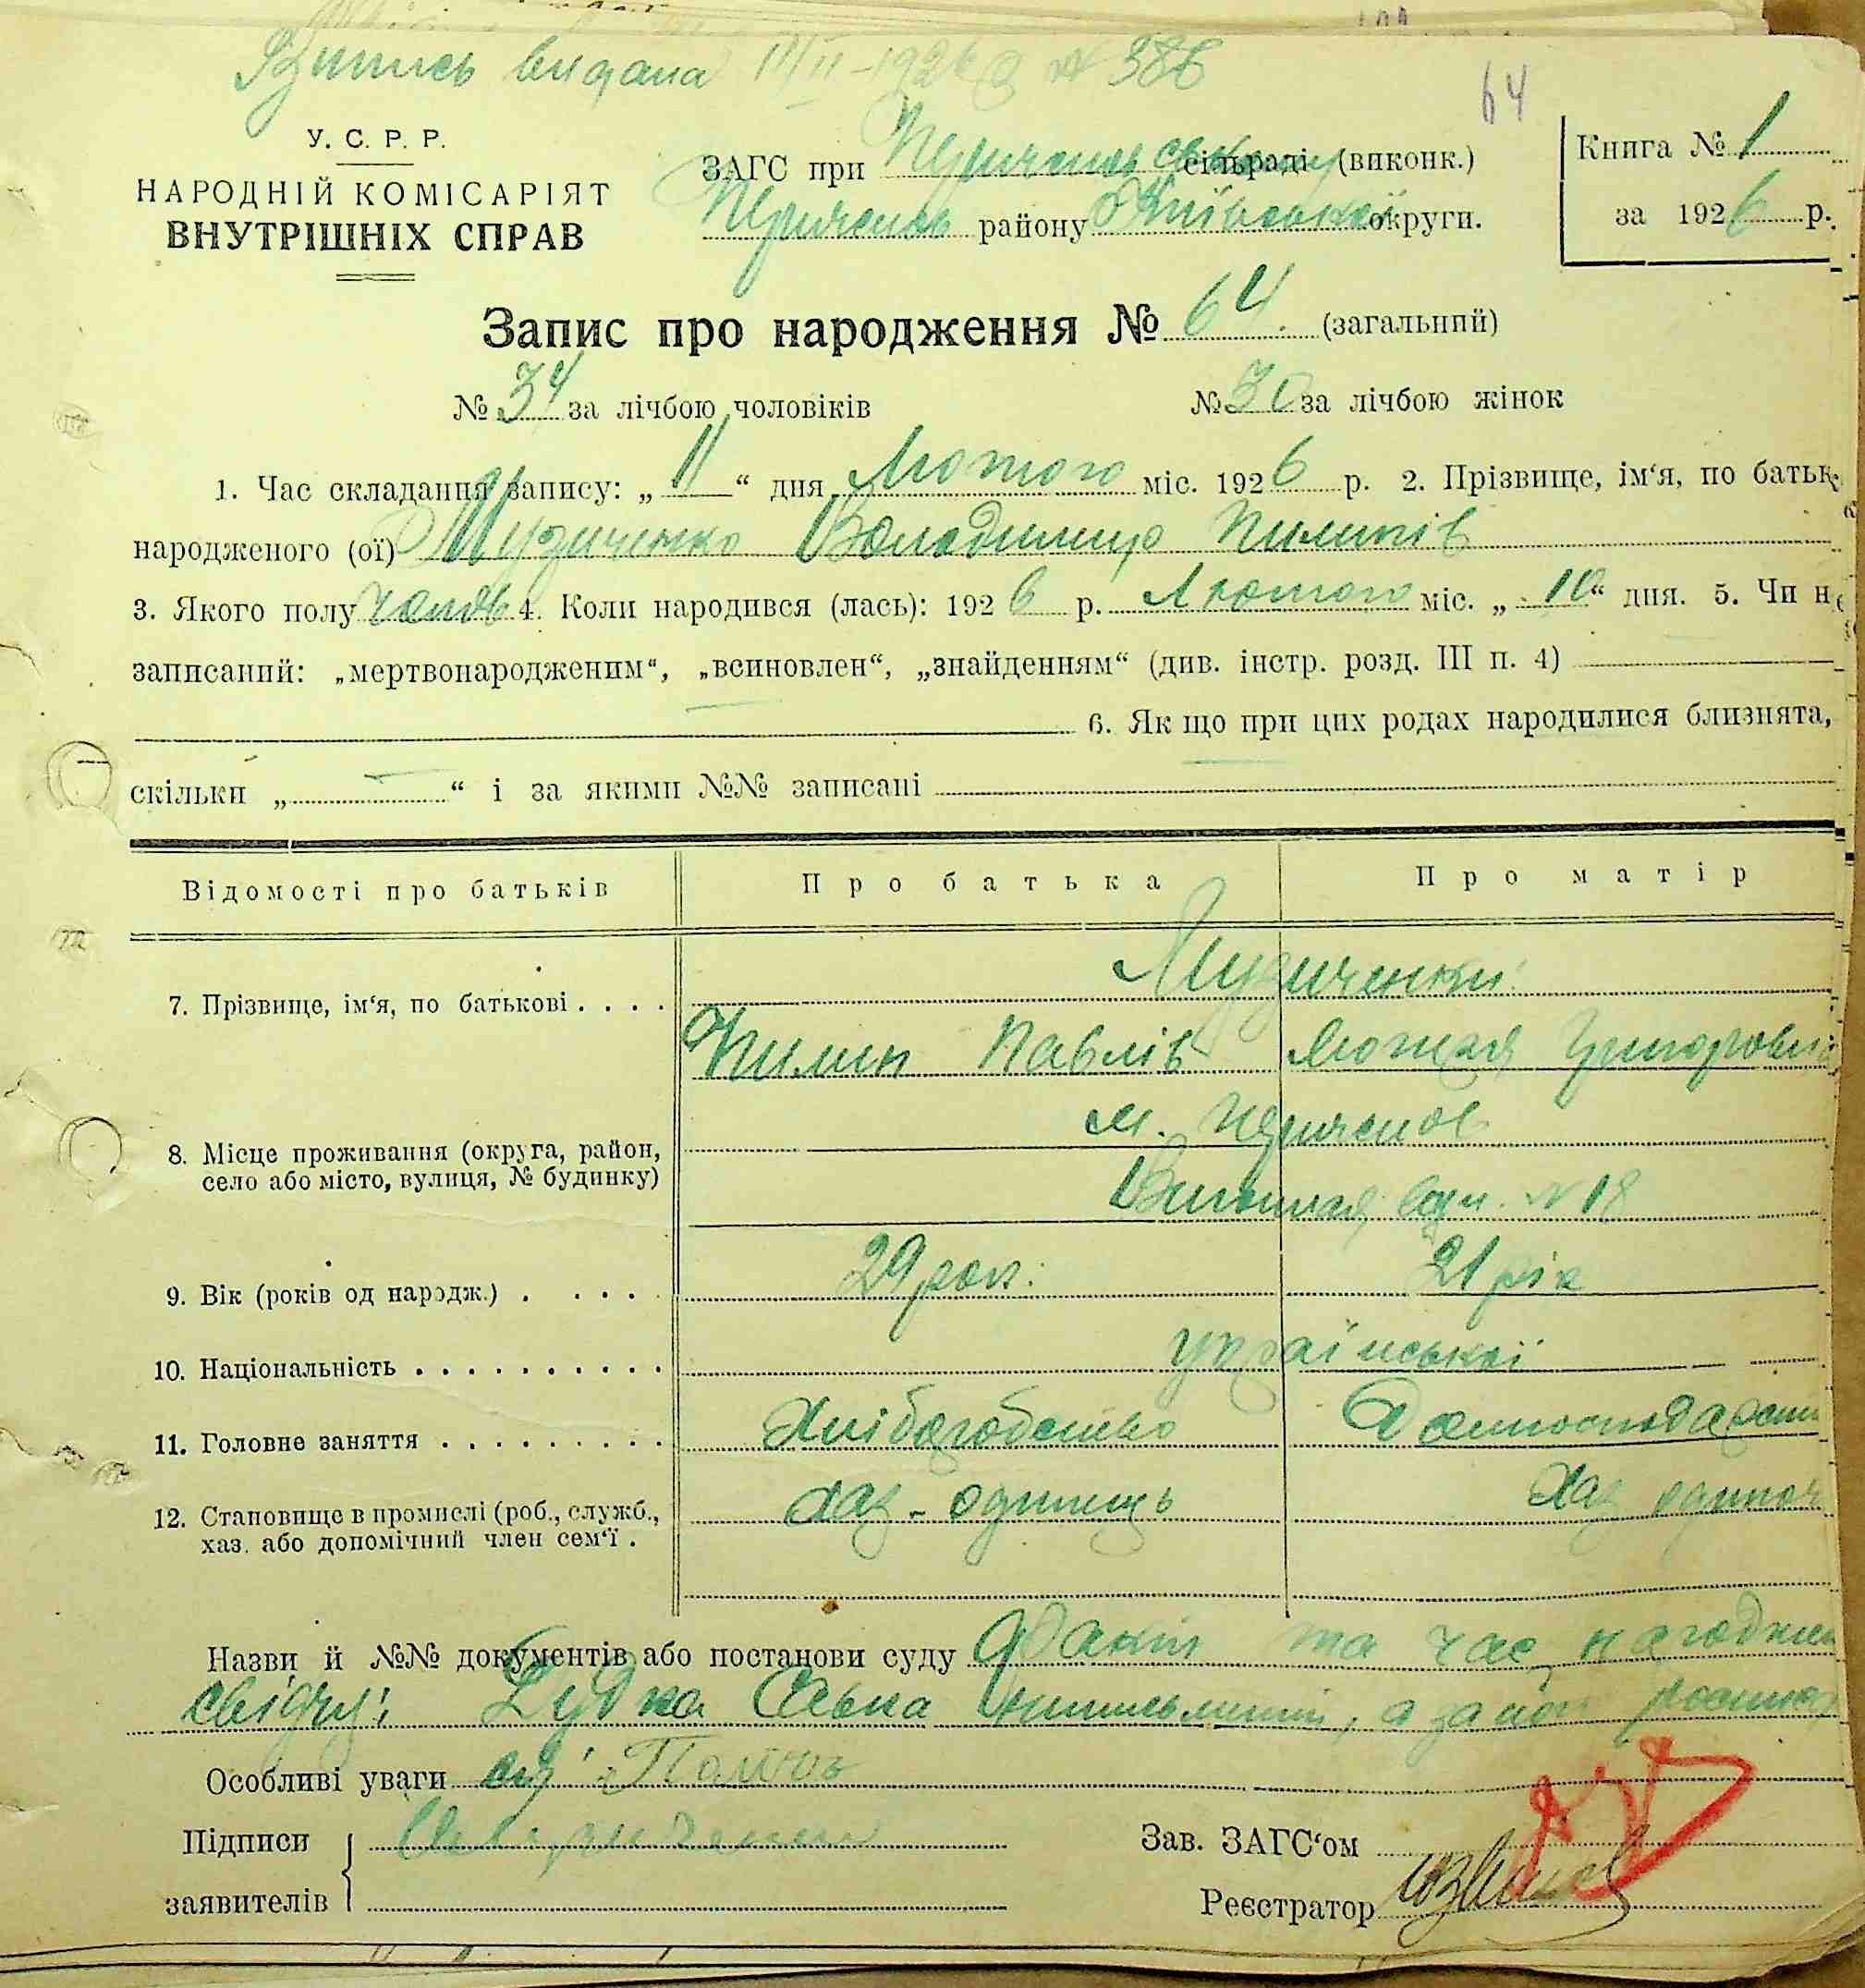 видана 11/II-1926 № 386
64
У. С. Р. Р.
НАРОДНІЙ КОМІСАРІЯТ
ВНУТРІШНІХ СПРАВ
ЗАГС при сільраді (виконк.)
району Київської округи.
Книга № 1
за 1926 р.
Запис про народження № 64. (загальний)
№ 34 за лічбою чоловіків № 30 за лічбою жінок
1. Час складання запису: „11“ дня Лютого міс. 1926 р. 2. Прізвище, ім‘я, по батьк
народженого (ої) Музиченко Володимир Пилипів
3. Якого полу чолов 4. Коли народився (лась): 1926 р. Лютого міс. „10“ дня. 5. Чи не
записаний: „мертвонародженим“, „всиновлен“, „знайденням“ (див. інстр. розд. III п. 4)
6. Як що при цих родах народилися близнята,
скільки „ “ і за якими №№ записані
Відомості про батьків Про батька Про матір
7. Прізвище, ім‘я, по батькові . . . . Музиченки
Пилип Павлів Григоровна
8. Місце проживання (округа, район,
село або місто, вулиця, № будинку)
м.
вул. № 18
9. Вік (років од народж.) . . . . . 29 рок. 21 рік
10. Національність . . . . . . . . . . української
11. Головне заняття . . . . . . . . . Хліборобство
12. Становище в промислі (роб., служб.,
хаз. або допомічний член сем‘ї .
хаз - одинець хаз одиноч
Назви й №№ документів або постанови суду та час народжен
свідчу: Дудка
Особливі уваги
Підписи
заявителів
Зав. ЗАГС‘ом
Реєстратор